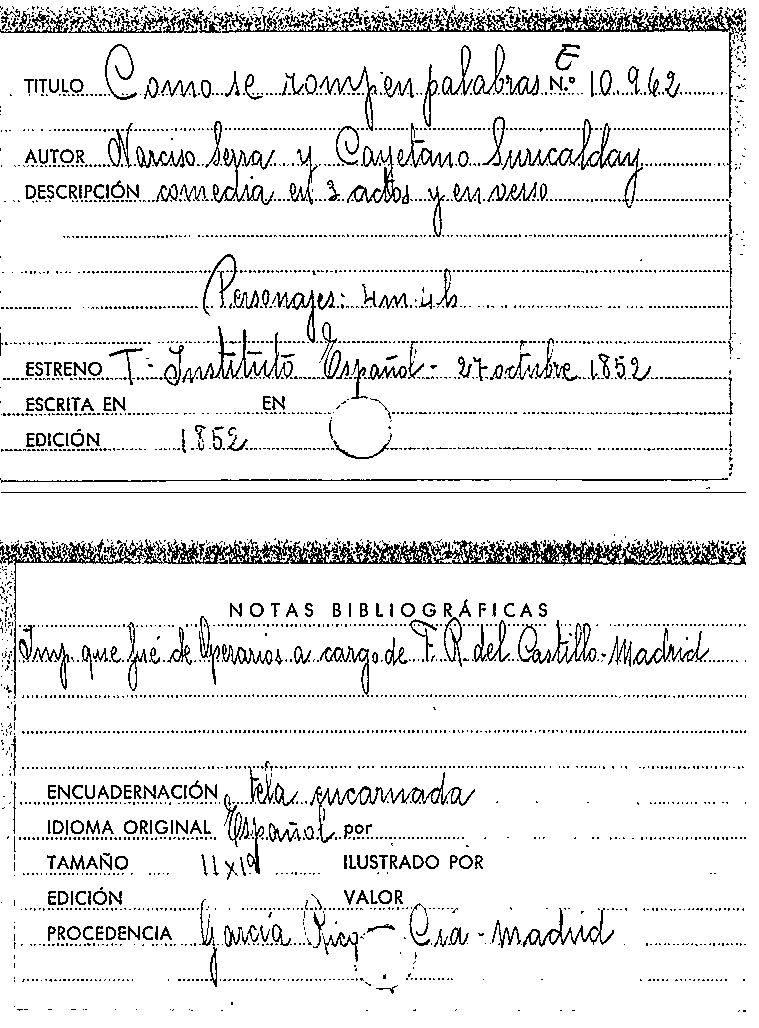 E
TITULO Como se rompen palabras N.º 10.962
AUTOR Narciso Serra y Cayetano Suricalday
DESCRIPCIÓN comedia en 3 actos y en verso
Personajes: 4m. 4h
ESTRENO T- Instituto Español - 27 octubre 1852
ESCRITA EN EN
EDICIÓN 1852
NOTAS BIBLIOGRÁFICAS
Imp. que fué de Operarios a cargo de F. R. del Castillo-Madrid
ENCUADERNACIÓN tela encarnada
IDIOMA ORIGINAL Español por
TAMAÑO 11x19 ILUSTRADO POR
EDICIÓN VALOR
PROCEDENCIA García Rico - Cia - Madrid